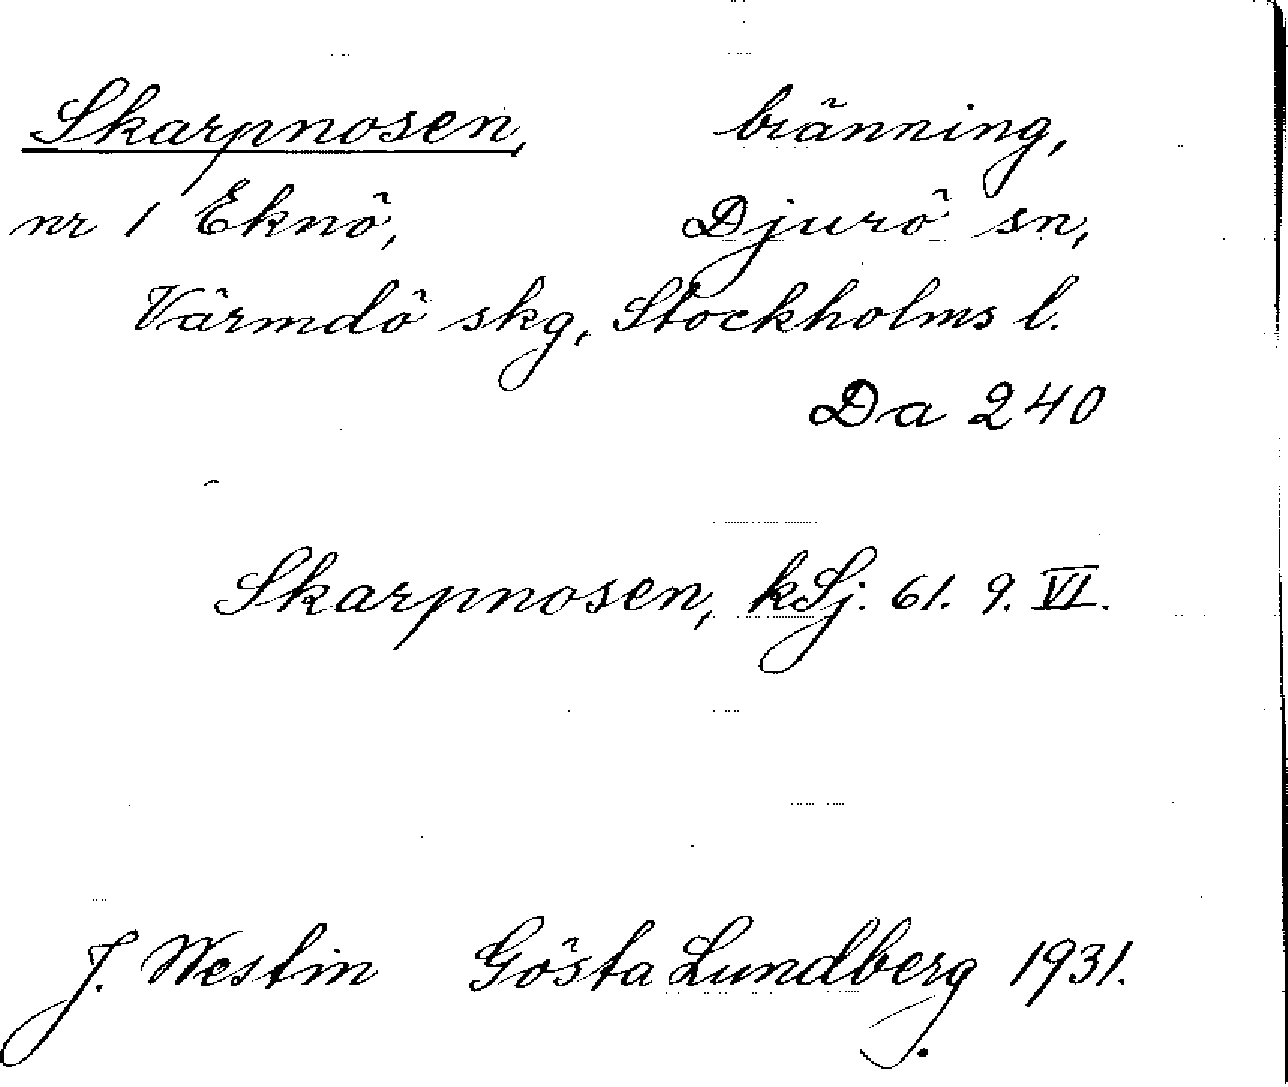 Skarpnosen, bränning,
nr 1 Eknö, Djurö sn,
Värmdö skg, Stockholms l.
Da 240
Skarpnosen, kSj. 61. 9. VI.
J. Westin Gösta Lundberg 1931.